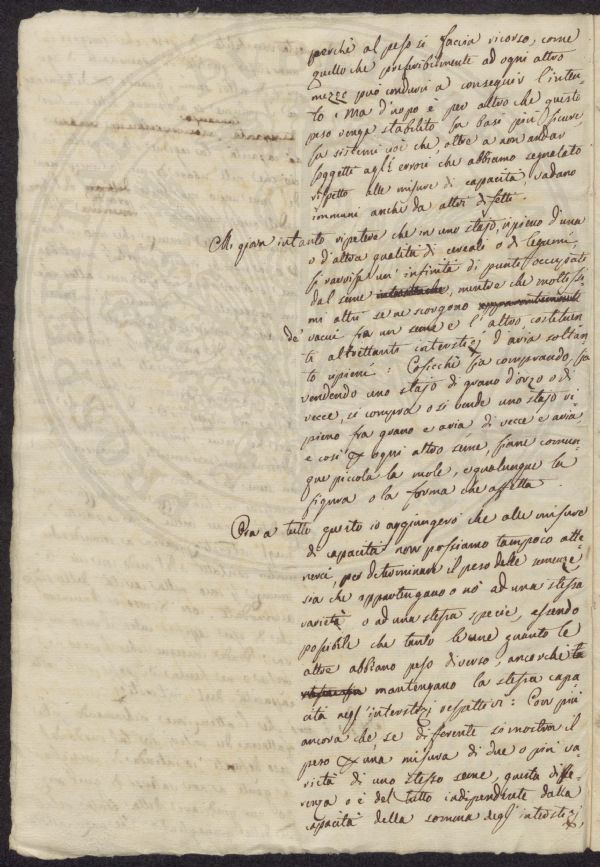 perchè al peso si faccia ricorso, come
quello che preferibilmente ad ogni altro
mezzo può condurci a conseguir l'inten-
to. Ma d'uopo è per altro che questo
peso venga stabilito su basi più sicure
su sistemi voi che, oltre a non andar
soggetti agli errori che abbiamo segnalato
rispetto alle misure di capacità, vadano
immuni anche da altri difetti.
Mi giova intanto ripetere che in uno stajo, ripieno d'una
o d'altra qualità di cereali o di legumi,
si ravvisa un'infinità di punti occupati
dal seme, mentre che moltissi-
mi altri se ne scorgono
de' vacui fra un seme e l'altro costituen-
ti altrettanti interstizj d'aria soltan-
to ripieni: Cosicchè sia comprando, sia
vendendo uno stajo di grano d'orzo o di
vecce, si compra o si vende uno stajo ri-
pieno fra grano e aria di vecce e aria
e così per ogni altro seme, siane comun-
que piccola la mole, e qualunque la
figura o la forma che affetta.
Ora a tutto questo io aggiungerò che alle misure
di capacità non possiamo tampoco atte-
nerci, per determinare il peso delle semenze
sia che appartengano o nò ad una stessa
varietà o ad una stessa specie, essendo
possibile che tanto le une quanto le
altre abbiano peso diverso, ancorchè
mantengano la stessa capa-
cità negl'interstizj respettivi: Con più
ancora che, se differente si mostra il
peso per una misura di due o più va-
rietà di uno stesso seme, questa diffe-
renza o è del tutto indipendente dalla
capacità della somma degl'interstizj,